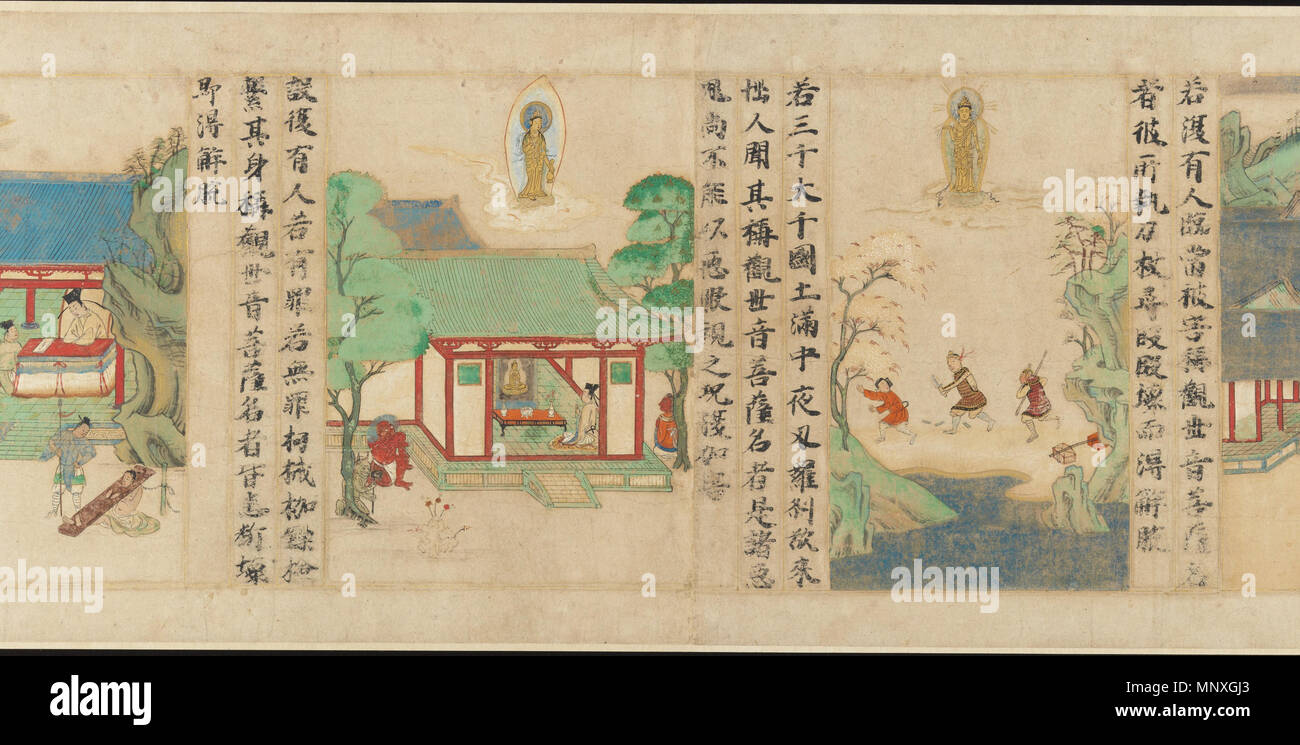 若復有人臨當被害稱觀世音菩薩名
者彼所執刀杖尋段段壞而得解脫
若三千大千國土滿中夜叉羅剎欲來
惱人聞其稱觀世音菩薩名者是諸惡
鬼尚不能以惡眼視之況復加害
設復有人若有罪若無罪杻械枷鎖檢
繫其身稱觀世音菩薩名者皆悉斷壞
即得解脫
a
a
a
alamy
a
a
alamy
Image ID: MNXGJ3
www.alamy.com